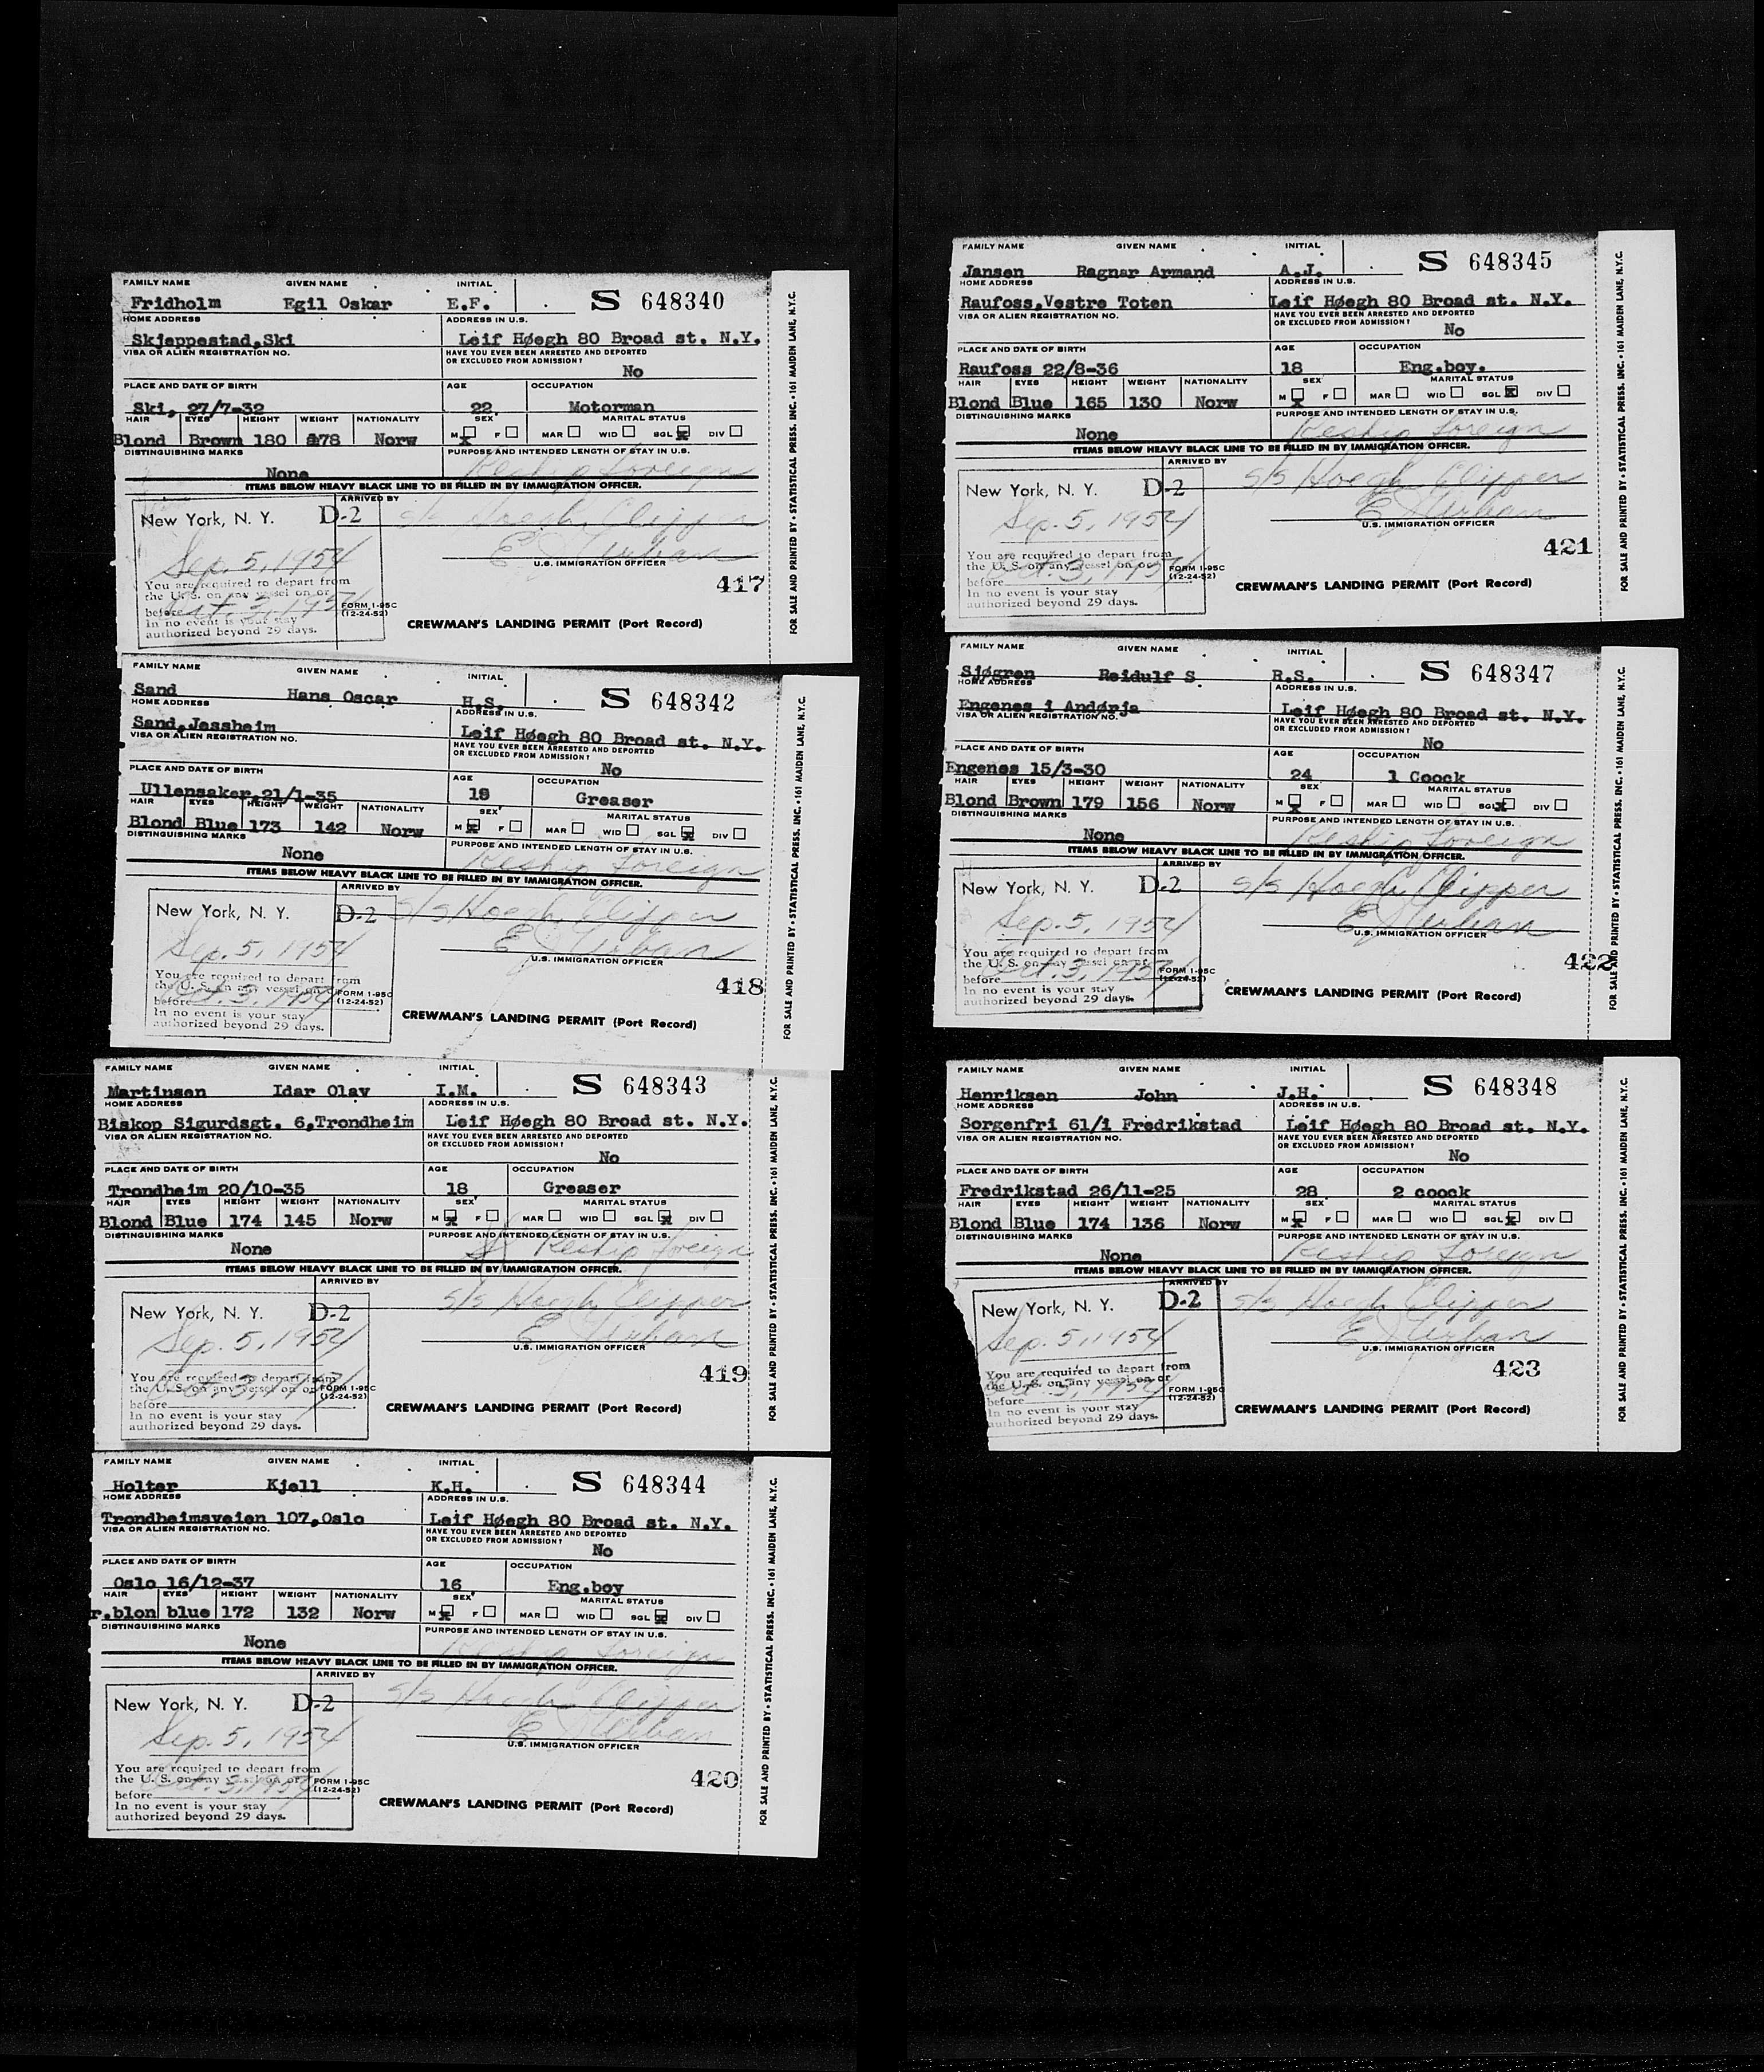 FAMILY NAME GIVEN NAME INITIAL
Fridholm Egil Oskar E.F. S 648340
HOME ADDRESS ADDRESS IN U.S.
Skjeppestad,Ski Leif Høegh 80 Broad st. N.Y.
VISA OR ALIEN REGISTRATION NO. HAVE YOU EVER BEEN ARRESTED AND DEPORTED
OR EXCLUDED FROM ADMISSION?
No
PLACE AND DATE OF BIRTH AGE OCCUPATION
Ski, 27/7-32 22 Motorman
HAIR EYES HEIGHT WEIGHT NATIONALITY SEX MARITAL STATUS
Blond Brown 180 178 Norw M F MAR WID SGL DIV
DISTINGUISHING MARKS PURPOSE AND INTENDED LENGTH OF STAY IN U.S.
None Reship foreign
ITEMS BELOW HEAVY BLACK LINE TO BE FILLED IN BY IMMIGRATION OFFICER.
ARRIVED BY
New York, N. Y. D-2 s/s Hoegh Clipper
Sep. 5, 1954 E J Urban
U.S. IMMIGRATION OFFICER
You are required to depart from
the U. S. on any vessel on or
before Oct. 3, 1954
In no event is your stay
authorized beyond 29 days.
FORM I-95C
(12-24-52)
417
CREWMAN'S LANDING PERMIT (Port Record)
FOR SALE AND PRINTED BY • STATISTICAL PRESS. INC. • 161 MAIDEN LANE, N.Y.C.
FAMILY NAME GIVEN NAME INITIAL
Sand Hans Oscar H.S. S 648342
HOME ADDRESS ADDRESS IN U.S.
Sand,Jessheim Leif Høegh 80 Broad st. N.Y.
VISA OR ALIEN REGISTRATION NO. HAVE YOU EVER BEEN ARRESTED AND DEPORTED
OR EXCLUDED FROM ADMISSION?
No
PLACE AND DATE OF BIRTH AGE OCCUPATION
Ullensaker,21/1-35 19 Greaser
HAIR EYES HEIGHT WEIGHT NATIONALITY SEX MARITAL STATUS
Blond Blue 173 142 Norw M F MAR WID SGL DIV
DISTINGUISHING MARKS PURPOSE AND INTENDED LENGTH OF STAY IN U.S.
None Reship foreign
ITEMS BELOW HEAVY BLACK LINE TO BE FILLED IN BY IMMIGRATION OFFICER.
ARRIVED BY
New York, N. Y. D-2 s/s Hoegh Clipper
Sep. 5, 1954 E J Urban
U.S. IMMIGRATION OFFICER
You are required to depart from
the U. S. on any vessel on or
before Oct. 3, 1954
In no event is your stay
authorized beyond 29 days.
FORM I-95C
(12-24-52)
418
CREWMAN'S LANDING PERMIT (Port Record)
FOR SALE AND PRINTED BY • STATISTICAL PRESS. INC. • 161 MAIDEN LANE, N.Y.C.
FAMILY NAME GIVEN NAME INITIAL
Martinsen Idar Olav I.M. S 648343
HOME ADDRESS ADDRESS IN U.S.
Biskop Sigurdsgt. 6,Trondheim Leif Høegh 80 Broad st. N.Y.
VISA OR ALIEN REGISTRATION NO. HAVE YOU EVER BEEN ARRESTED AND DEPORTED
OR EXCLUDED FROM ADMISSION?
No
PLACE AND DATE OF BIRTH AGE OCCUPATION
Trondheim 20/10-35 18 Greaser
HAIR EYES HEIGHT WEIGHT NATIONALITY SEX MARITAL STATUS
Blond Blue 174 145 Norw M F MAR WID SGL DIV
DISTINGUISHING MARKS PURPOSE AND INTENDED LENGTH OF STAY IN U.S.
None Reship foreign
ITEMS BELOW HEAVY BLACK LINE TO BE FILLED IN BY IMMIGRATION OFFICER.
ARRIVED BY
New York, N. Y. D-2 s/s Hoegh Clipper
Sep. 5, 1954 E J Urban
U.S. IMMIGRATION OFFICER
You are required to depart from
the U. S. on any vessel on or
before Oct. 3, 1954
In no event is your stay
authorized beyond 29 days.
FORM I-95C
(12-24-52)
419
CREWMAN'S LANDING PERMIT (Port Record)
FOR SALE AND PRINTED BY • STATISTICAL PRESS. INC. • 161 MAIDEN LANE, N.Y.C.
FAMILY NAME GIVEN NAME INITIAL
Holter Kjell K.H. S 648344
HOME ADDRESS ADDRESS IN U.S.
Trondheimsveien 107,Oslo Leif Høegh 80 Broad st. N.Y.
VISA OR ALIEN REGISTRATION NO. HAVE YOU EVER BEEN ARRESTED AND DEPORTED
OR EXCLUDED FROM ADMISSION?
No
PLACE AND DATE OF BIRTH AGE OCCUPATION
Oslo 16/12-37 16 Eng.boy
HAIR EYES HEIGHT WEIGHT NATIONALITY SEX MARITAL STATUS
r.blon blue 172 132 Norw M F MAR WID SGL DIV
DISTINGUISHING MARKS PURPOSE AND INTENDED LENGTH OF STAY IN U.S.
None Reship foreign
ITEMS BELOW HEAVY BLACK LINE TO BE FILLED IN BY IMMIGRATION OFFICER.
ARRIVED BY
New York, N. Y. D-2 s/s Hoegh Clipper
Sep. 5, 1954 E J Urban
U.S. IMMIGRATION OFFICER
You are required to depart from
the U. S. on any vessel on or
before Oct. 3, 1954
In no event is your stay
authorized beyond 29 days.
FORM I-95C
(12-24-52)
420
CREWMAN'S LANDING PERMIT (Port Record)
FOR SALE AND PRINTED BY • STATISTICAL PRESS. INC. • 161 MAIDEN LANE, N.Y.C.
FAMILY NAME GIVEN NAME INITIAL
Jansen Ragnar Armand A.J. S 648345
HOME ADDRESS ADDRESS IN U.S.
Raufoss,Vestre Toten Leif Høegh 80 Broad st. N.Y.
VISA OR ALIEN REGISTRATION NO. HAVE YOU EVER BEEN ARRESTED AND DEPORTED
OR EXCLUDED FROM ADMISSION?
No
PLACE AND DATE OF BIRTH AGE OCCUPATION
Raufoss 22/8-36 18 Eng.boy.
HAIR EYES HEIGHT WEIGHT NATIONALITY SEX MARITAL STATUS
Blond Blue 165 130 Norw M F MAR WID SGL DIV
DISTINGUISHING MARKS PURPOSE AND INTENDED LENGTH OF STAY IN U.S.
None Reship foreign
ITEMS BELOW HEAVY BLACK LINE TO BE FILLED IN BY IMMIGRATION OFFICER.
ARRIVED BY
New York, N. Y. D-2 s/s Hoegh Clipper
Sep. 5, 1954 E J Urban
U.S. IMMIGRATION OFFICER
You are required to depart from
the U. S. on any vessel on or
before Oct. 3, 1954
In no event is your stay
authorized beyond 29 days.
FORM I-95C
(12-24-52)
421
CREWMAN'S LANDING PERMIT (Port Record)
FOR SALE AND PRINTED BY • STATISTICAL PRESS. INC. • 161 MAIDEN LANE, N.Y.C.
FAMILY NAME GIVEN NAME INITIAL
Sjøgren Reidulf S R.S. S 648347
HOME ADDRESS ADDRESS IN U.S.
Engenes i Andørja Leif Høegh 80 Broad st. N.Y.
VISA OR ALIEN REGISTRATION NO. HAVE YOU EVER BEEN ARRESTED AND DEPORTED
OR EXCLUDED FROM ADMISSION?
No
PLACE AND DATE OF BIRTH AGE OCCUPATION
Engenes 15/3-30 24 1 Coock
HAIR EYES HEIGHT WEIGHT NATIONALITY SEX MARITAL STATUS
Blond Brown 179 156 Norw M F MAR WID SGL DIV
DISTINGUISHING MARKS PURPOSE AND INTENDED LENGTH OF STAY IN U.S.
None Reship foreign
ITEMS BELOW HEAVY BLACK LINE TO BE FILLED IN BY IMMIGRATION OFFICER.
ARRIVED BY
New York, N. Y. D-2 s/s Hoegh Clipper
Sep. 5, 1954 E J Urban
U.S. IMMIGRATION OFFICER
You are required to depart from
the U. S. on any vessel on or
before Oct. 3, 1954
In no event is your stay
authorized beyond 29 days.
FORM I-95C
(12-24-52)
422
CREWMAN'S LANDING PERMIT (Port Record)
FOR SALE AND PRINTED BY • STATISTICAL PRESS. INC. • 161 MAIDEN LANE, N.Y.C.
FAMILY NAME GIVEN NAME INITIAL
Henriksen John J.H. S 648348
HOME ADDRESS ADDRESS IN U.S.
Sorgenfri 61/i Fredrikstad Leif Høegh 80 Broad st. N.Y.
VISA OR ALIEN REGISTRATION NO. HAVE YOU EVER BEEN ARRESTED AND DEPORTED
OR EXCLUDED FROM ADMISSION?
No
PLACE AND DATE OF BIRTH AGE OCCUPATION
Fredrikstad 26/11-25 28 2 coock
HAIR EYES HEIGHT WEIGHT NATIONALITY SEX MARITAL STATUS
Blond Blue 174 136 Norw M F MAR WID SGL DIV
DISTINGUISHING MARKS PURPOSE AND INTENDED LENGTH OF STAY IN U.S.
None Reship foreign
ITEMS BELOW HEAVY BLACK LINE TO BE FILLED IN BY IMMIGRATION OFFICER.
ARRIVED BY
New York, N. Y. D-2 s/s Hoegh Clipper
Sep. 5, 1954 E J Urban
U.S. IMMIGRATION OFFICER
You are required to depart from
the U. S. on any vessel on or
before Oct. 3, 1954
In no event is your stay
authorized beyond 29 days.
FORM I-95C
(12-24-52)
423
CREWMAN'S LANDING PERMIT (Port Record)
FOR SALE AND PRINTED BY • STATISTICAL PRESS. INC. • 161 MAIDEN LANE, N.Y.C.